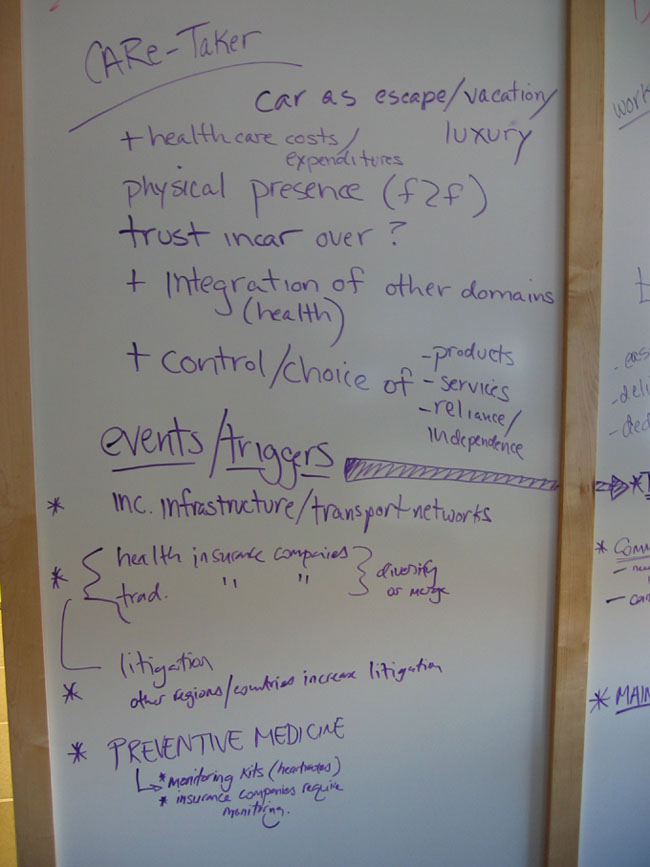 CARe-Taker
car as escape/vacation/
luxury
+ healthcare costs/
expenditures
physical presence (f2f)
trust incar over ?
+ Integration of other domains
(health)
+ control/choice of
- products
- services
- reliance/
independence
events/triggers
* inc. infrastructure/transport networks
* health insurance companies
trad. " "
diversify
or merge
litigation
* other regions/countries increase litigation
* PREVENTIVE MEDICINE
* monitoring kits (heartrates)
* insurance companies require
monitoring.
work
- eas
- deli
- ded
* COMM
- can
* MAIN